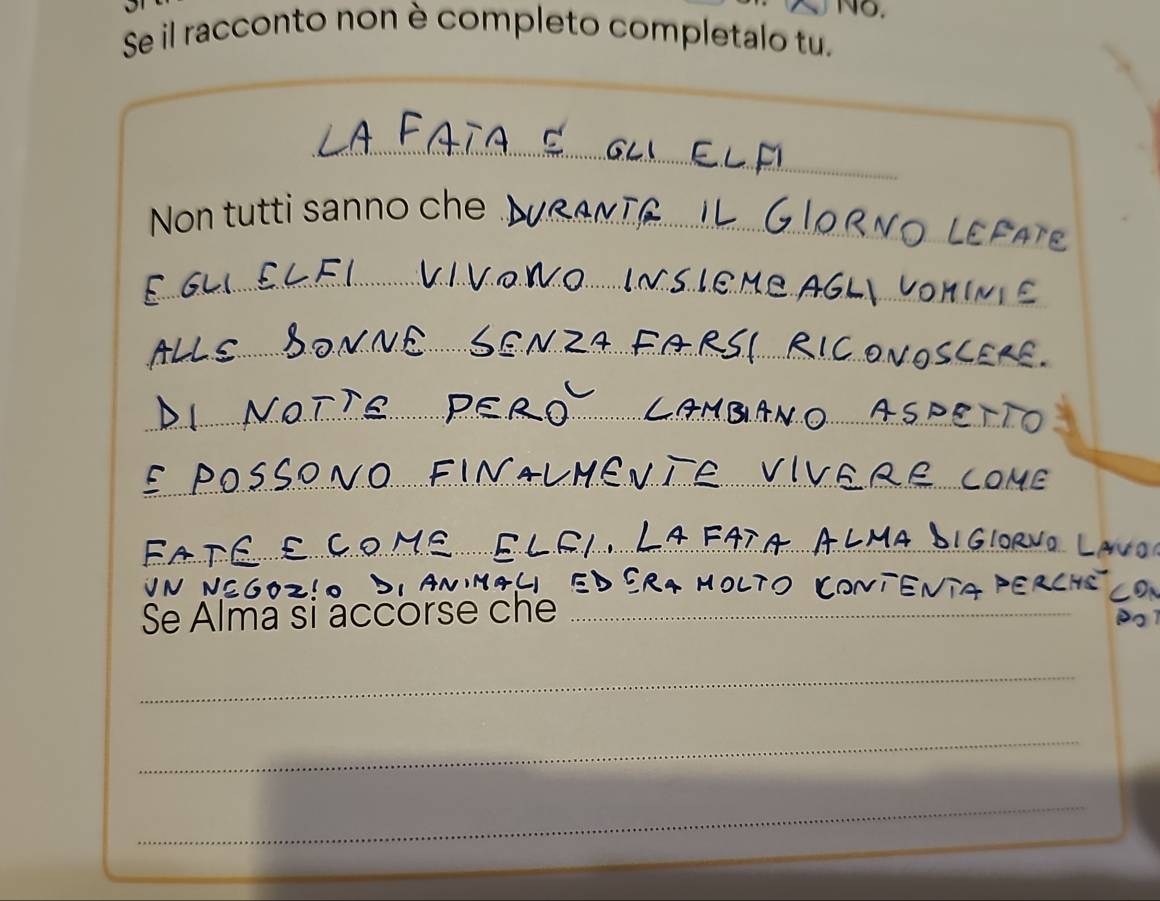 No.
Se il racconto non è completo completalo tu.
LA FATA E GLI ELFI
Non tutti sanno che DURANTE IL GIORNO LE FATE
E GLI ELFI VIVONO INSIEME AGLI UOMINI E
ALLE DONNE SENZA FARSI RICONOSCERE.
DI NOTTE PERÒ CAMBIANO ASPETTO
E POSSONO FINALMENTE VIVERE COME
FATE E COME ELFI. LA FATA ALMA DI GIORNO
UN NEGOZIO DI ANIMALI ED ERA MOLTO CONTENTA PERCHÉ
Se Alma si accorse che